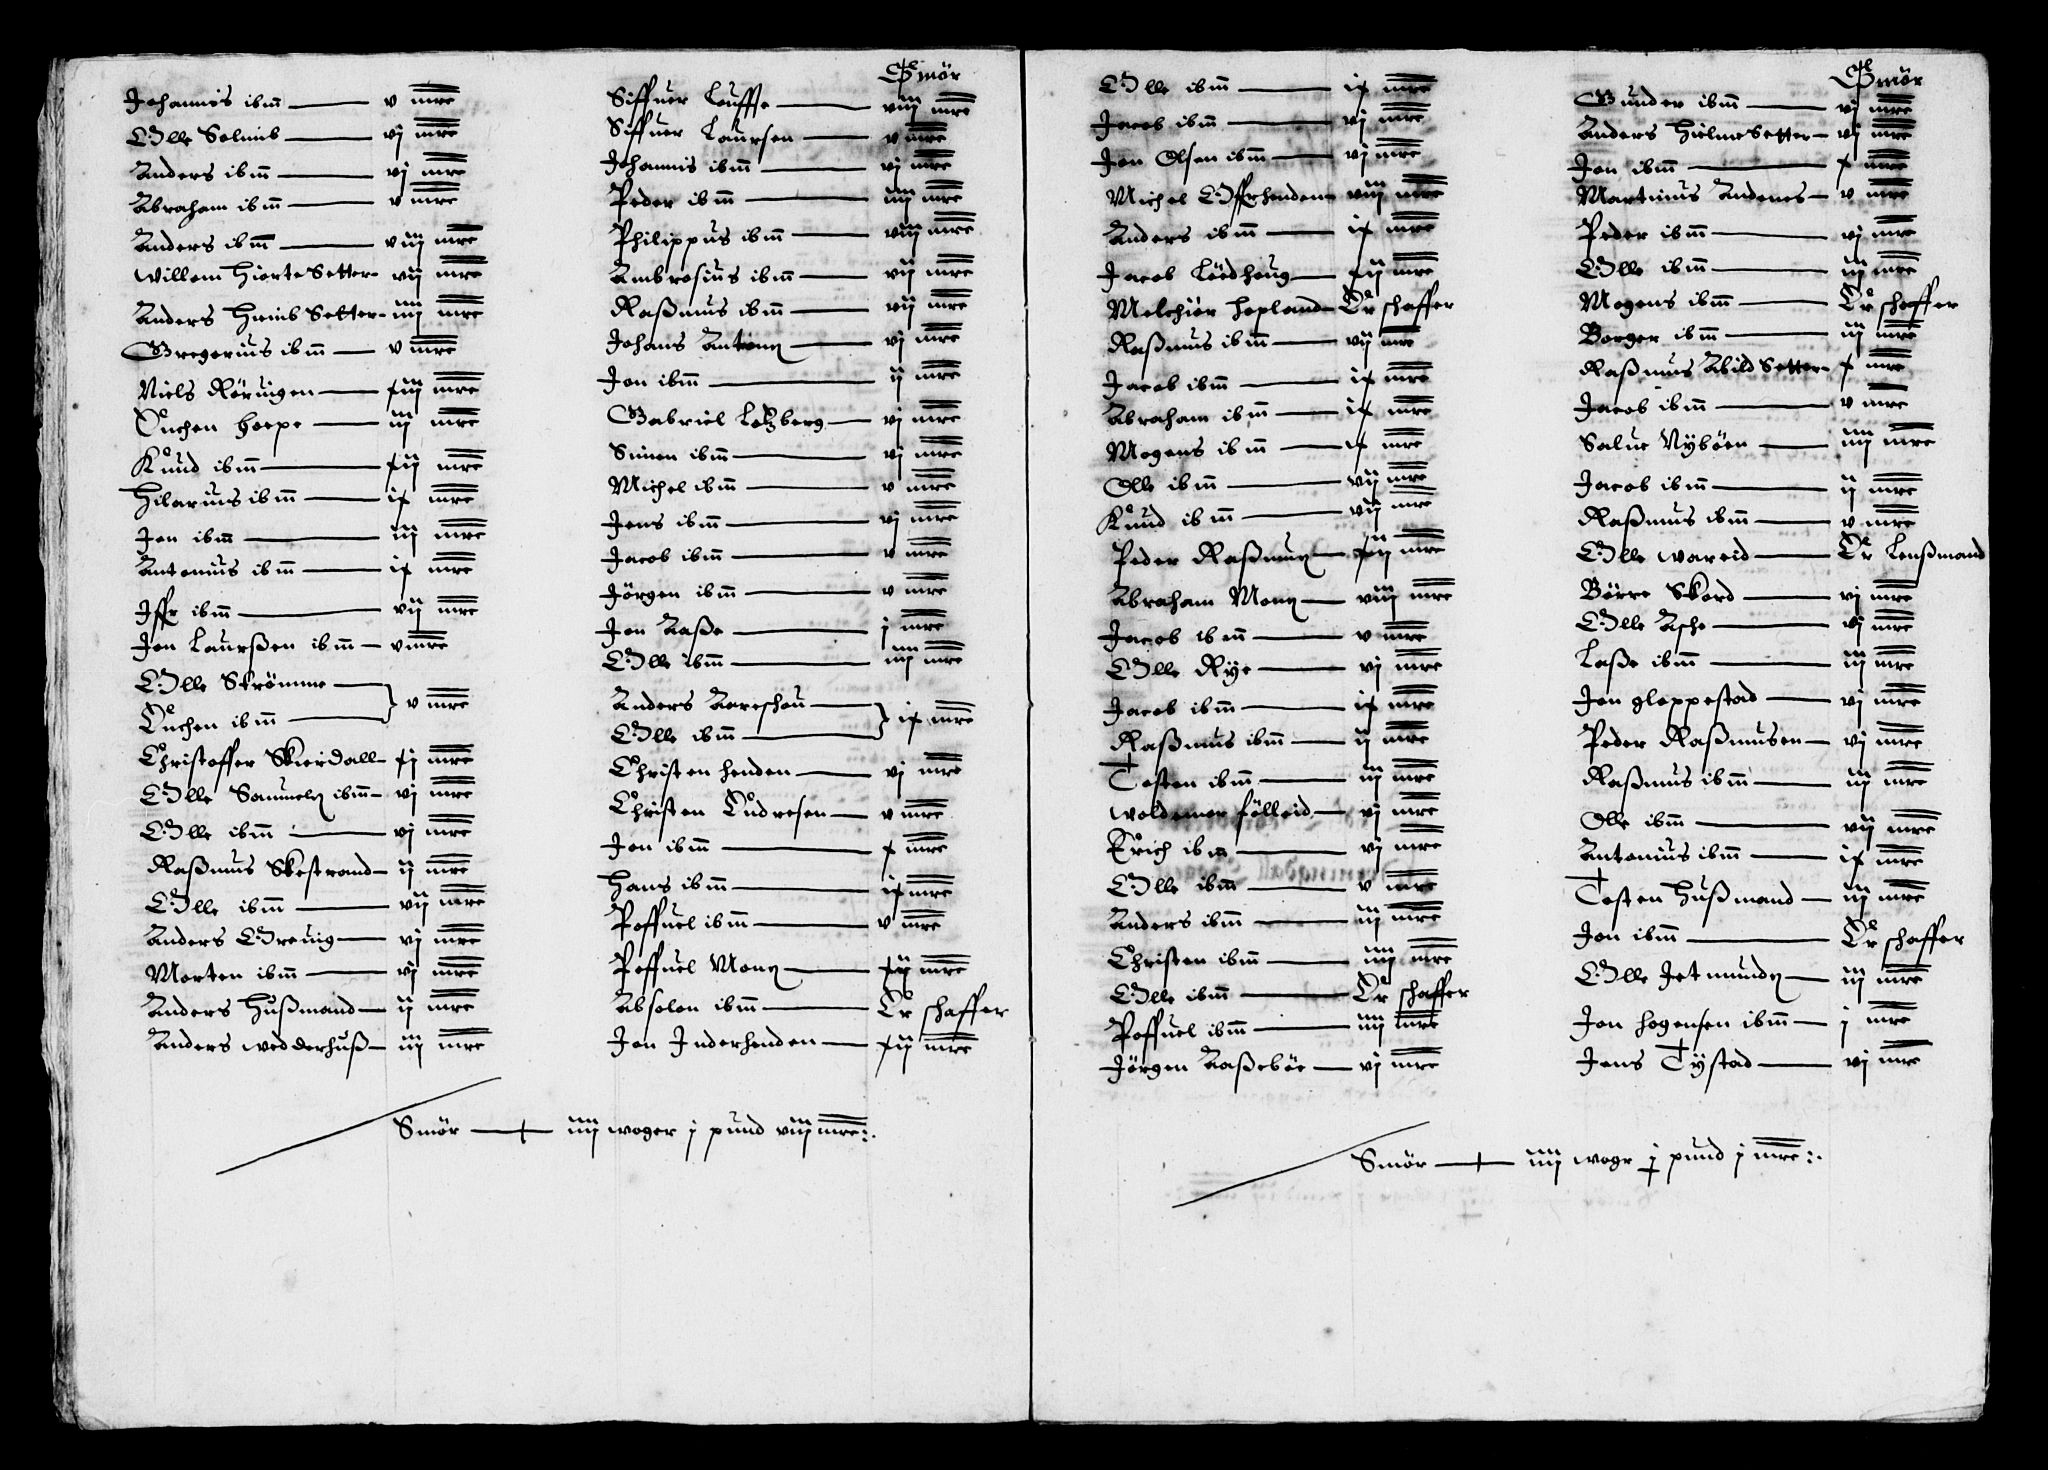 Johannis ibm̄ — v mrc
Olle Solnib — vj mrc
Anders ibm̄ — vj mrc
Abraham ibm̄ — v mrc
Anders ibm̄ — viij mrc
Willem HiorteSetter — vij mrc
Anders HeinibSetter — iiij mrc
Gregorius ibm̄ — v mrc
Niels Röruigen — xiij mrc
Ouchen Hoepe — iij mrc
Knud ibm̄ — xij mrc
Hilarius ibm̄ — ix mrc
Jon ibm̄ — iij mrc
Antonius ibm̄ — ix mrc
Iffr ibm̄ — vij mrc
Jon Laurßen ibm̄ — v mrc
Olle Strömme —
Ouchen ibm̄ — } v mrc
Christoffer Skierdall — xj mrc
Olle Samuelß ibm̄ — vj mrc
Olle ibm̄ — vj mrc
Raßmus Skestrand — ij mrc
Olle ibm̄ — vij mrc
Anders Greuig — vj mrc
Morten ibm̄ — vj mrc
Anders Hußmand — ij mrc
Anders Wedderhuß — iij mrc
Smör
Siffuer Leuffse — viij mrc
Siffuer Laursen — v mrc
Johannis ibm̄ — vj mrc
Peder ibm̄ — iiij mrc
Philippus ibm̄ — viij mrc
Ambrosius ibm̄ — vij mrc
Raßmus ibm̄ — vij mrc
Johans Antonß — vj mrc
Jon ibm̄ — ij mrc
Gabriel Lotzberg — vj mrc
Simon ibm̄ — vj mrc
Michel ibm̄ — v mrc
Jens ibm̄ — vj mrc
Jacob ibm̄ — v mrc
Jörgen ibm̄ — v mrc
Jon Aaße — j mrc
Olle ibm̄ — iiij mrc
Anders Aareschou —
Olle ibm̄ — } ix mrc
Christen Henden — vj mrc
Christen Oudresen — v mrc
Jon ibm̄ — x mrc
Hans ibm̄ — ix mrc
Poffuel ibm̄ — v mrc
Poffuel Monß — xij mrc
Absolon ibm̄ — Er schaffer
Jon Inderhenden — xij mrc
Smör — iiij woger j pund viij mrc
Olle ibm̄ — ix mrc
Jacob ibm̄ — vj mrc
Jon Olsen ibm̄ — vj mrc
Michel Offrhenden — viij mrc
Anders ibm̄ — ix mrc
Jacob Lödhoug — xij mrc
Melchior Hopland — Er schaffer
Raßmus ibm̄ — vij mrc
Jacob ibm̄ — ix mrc
Abraham ibm̄ — ix mrc
Mogens ibm̄ — ix mrc
Olle ibm̄ — vij mrc
Knud ibm̄ — vij mrc
Peder Raßmuß — xij mrc
Abraham Monß — viij mrc
Jacob ibm̄ — v mrc
Olle Rye — vj mrc
Jacob ibm̄ — ix mrc
Raßmus ibm̄ — ij mrc
Tosten ibm̄ — iij mrc
Woldemor Fölleid — vj mrc
Erich ibm — vj mrc
Olle ibm̄ — v mrc
Anders ibm̄ — iij mrc
Christen ibm̄ — iiij mrc
Olle ibm̄ — Er schaffer
Poffuel ibm̄ — iiij mrc
Jörgen Aaßeböe — vj mrc
Smör
Gunder ibm̄ — vj mrc
Anders HielmeSetter — vj mrc
Jon ibm̄ — x mrc
Martinus Andenes — v mrc
Peder ibm̄ — vj mrc
Olle ibm̄ — iij mrc
Mogens ibm̄ — Er schaffer
Borger ibm̄ — iij mrc
Raßmus AbildSetter — x mrc
Jacob ibm̄ — v mrc
Salue Nyböen — iiij mrc
Jacob ibm̄ — ij mrc
Raßmus ibm̄ — v mrc
Olle Wareid — Er Lenßmand
Börre Skord — vj mrc
Olle Aske — vj mrc
Laße ibm̄ — iij mrc
Jon Gloppestad — vj mrc
Peder Raßmusen — vj mrc
Raßmus ibm̄ — iij mrc
Olle ibm̄ — vij mrc
Antonius ibm̄ — ix mrc
Tosten Hußmand — iij mrc
Jon ibm̄ — Er schaffer
Olle Jetmundß — iij mrc
Jon Hogensen ibm̄ — j mrc
Jens Tystad — vj mrc
Smör — iiij wogr j pund j mrc